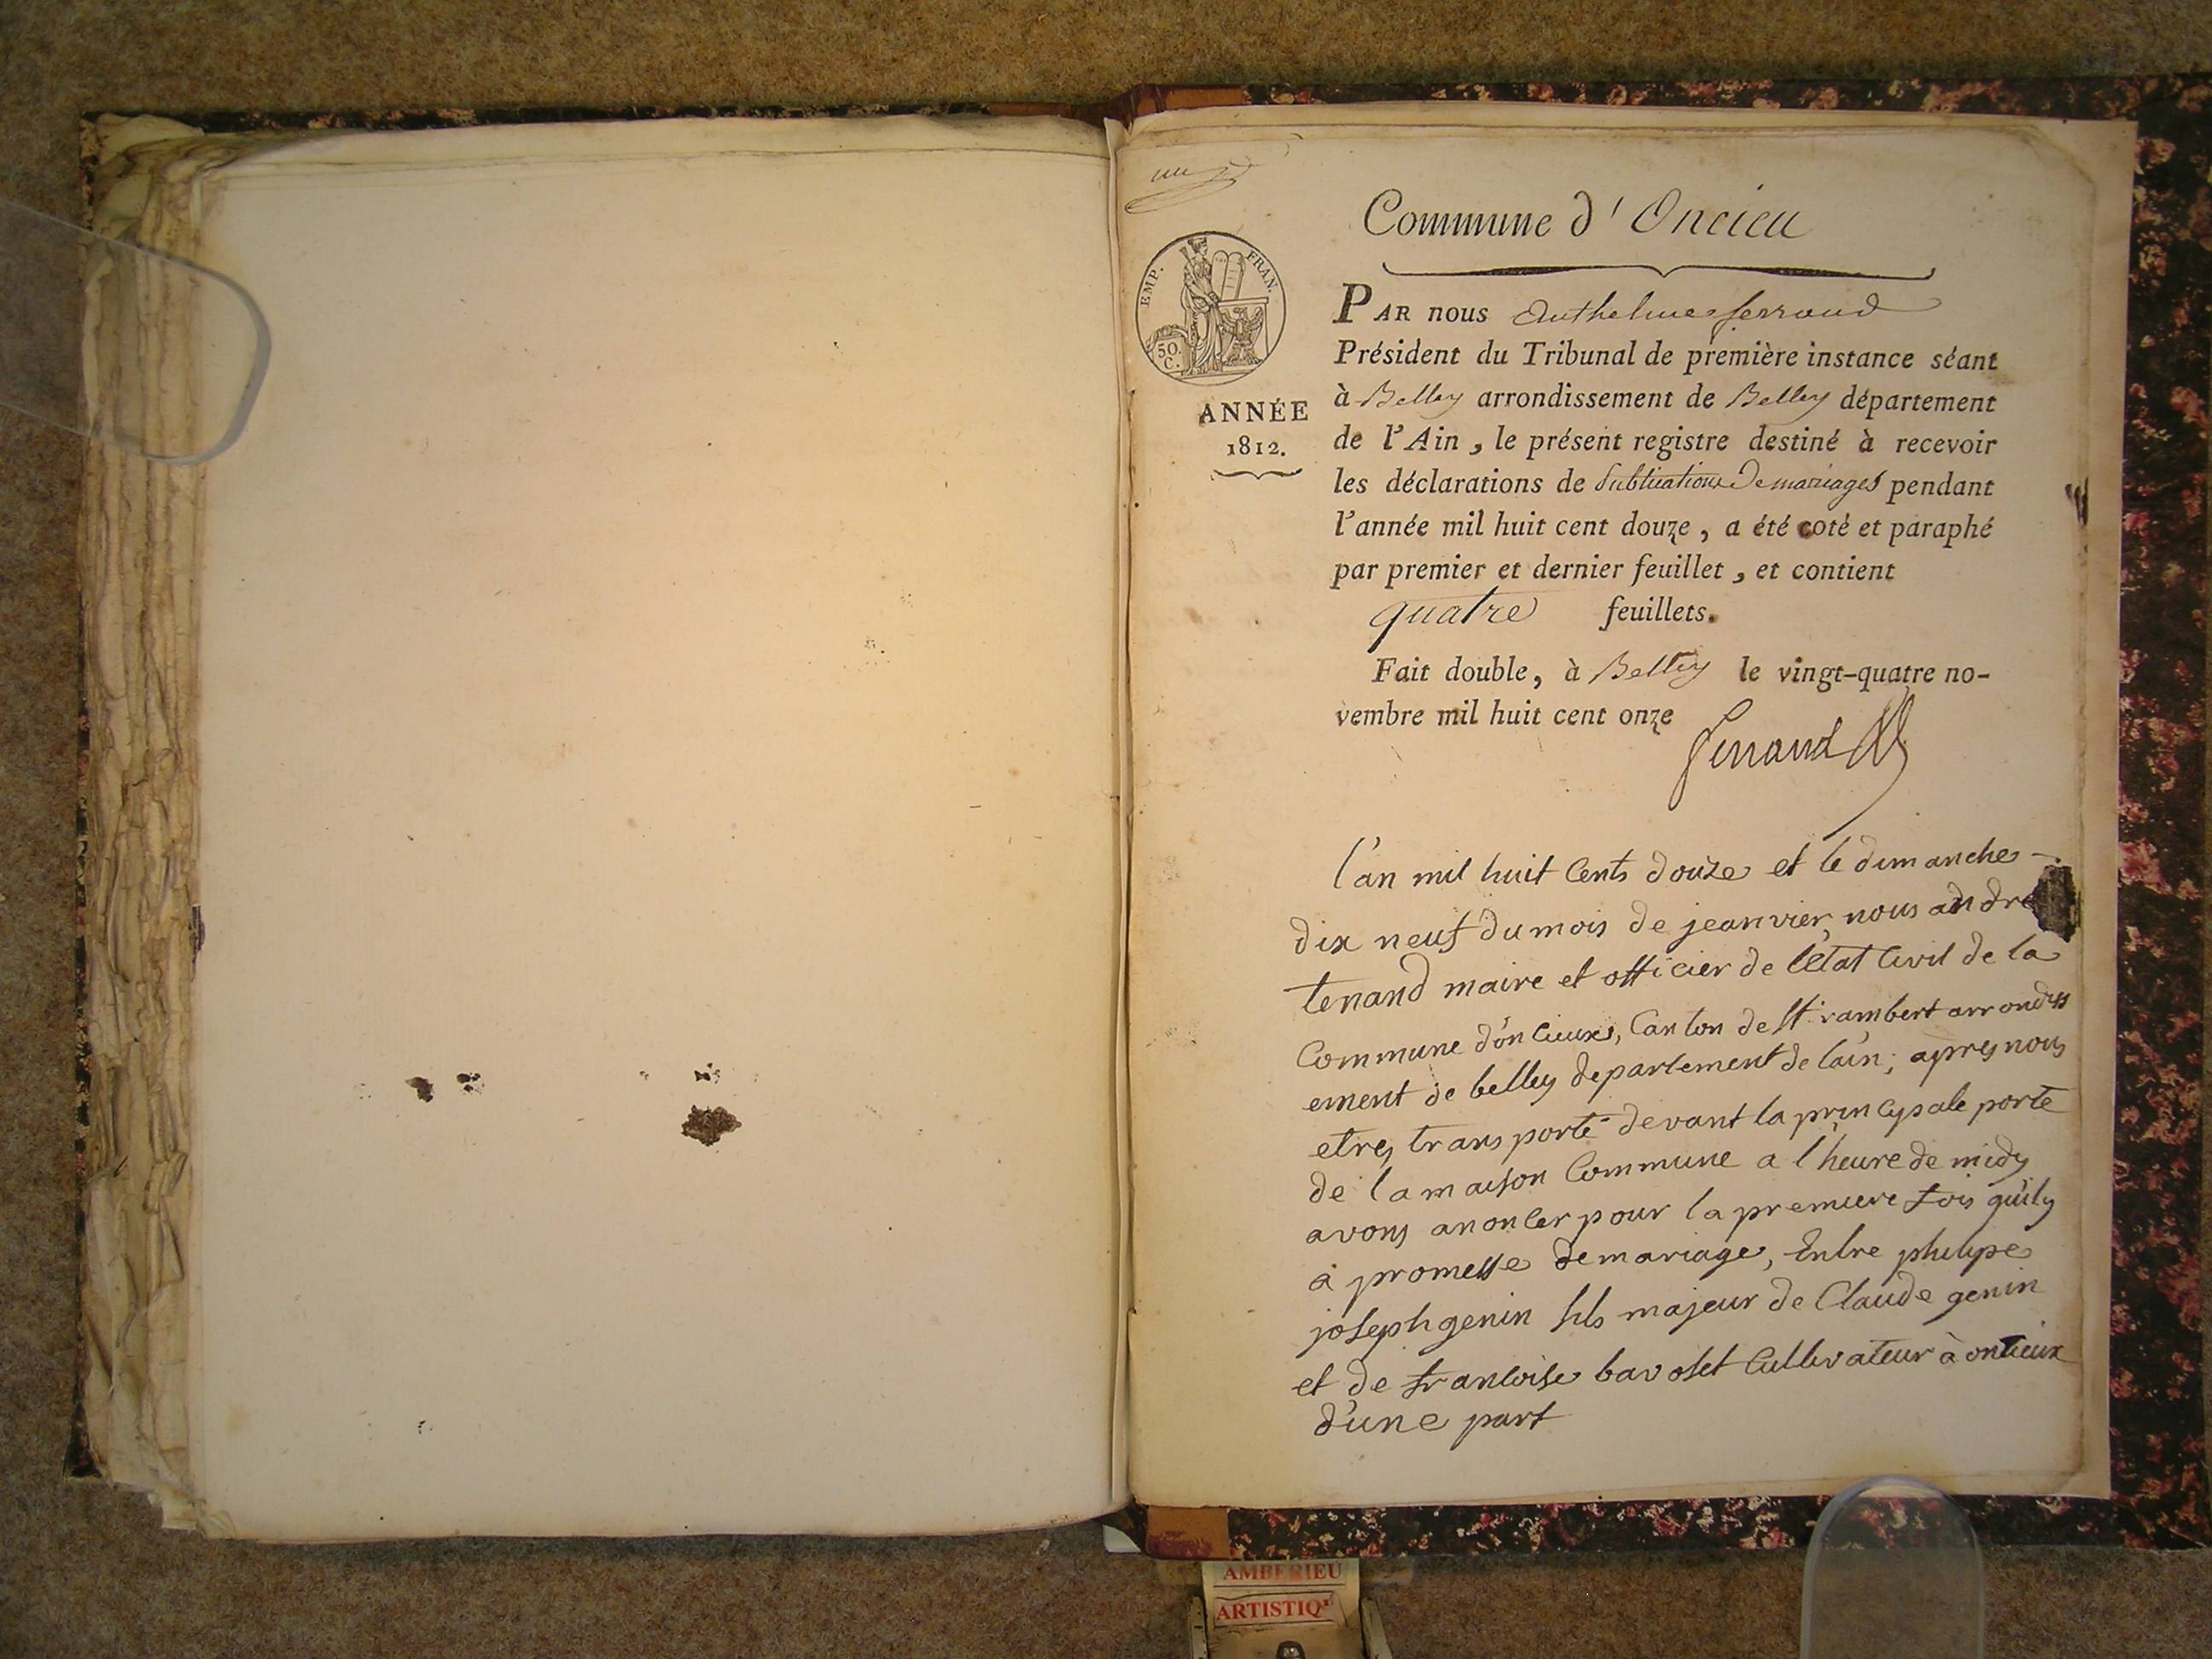 un
Commune d'Oncieu
EMP. FRAN.
50.
C.
ANNÉE
1812.
PAR nous Anthelme ferrand
Président du Tribunal de première instance séant
à Belley arrondissement de Belley département
de l'Ain, le présent registre destiné à recevoir
les déclarations de Publications De mariages pendant
l'année mil huit cent douze, a été coté et paraphé
par premier et dernier feuillet, et contient
quatre feuillets.
Fait double, à Belley le vingt-quatre no-
vembre mil huit cent onze
ferrand
l'an mil huit Cents douze et le dimanche -
dix neuf du mois de jeanvier, nous andre
tenand maire et officier de l'Etat Civil de la
Commune d'onCieux, Canton de St rambert arrondiss
ement de belley departement de l'ain; apres nous
etres transporté devant la prinCypale porte
de la maison Commune a l'heure de midy
avons anonCer pour la premiere fois quily
a promesse de mariage, Entre philipe
joseph genin fils majeur de Claude genin
et de franCoise bavoset Cultivateur à ontieux
d'une part
AMBERIEU
ARTISTIQ